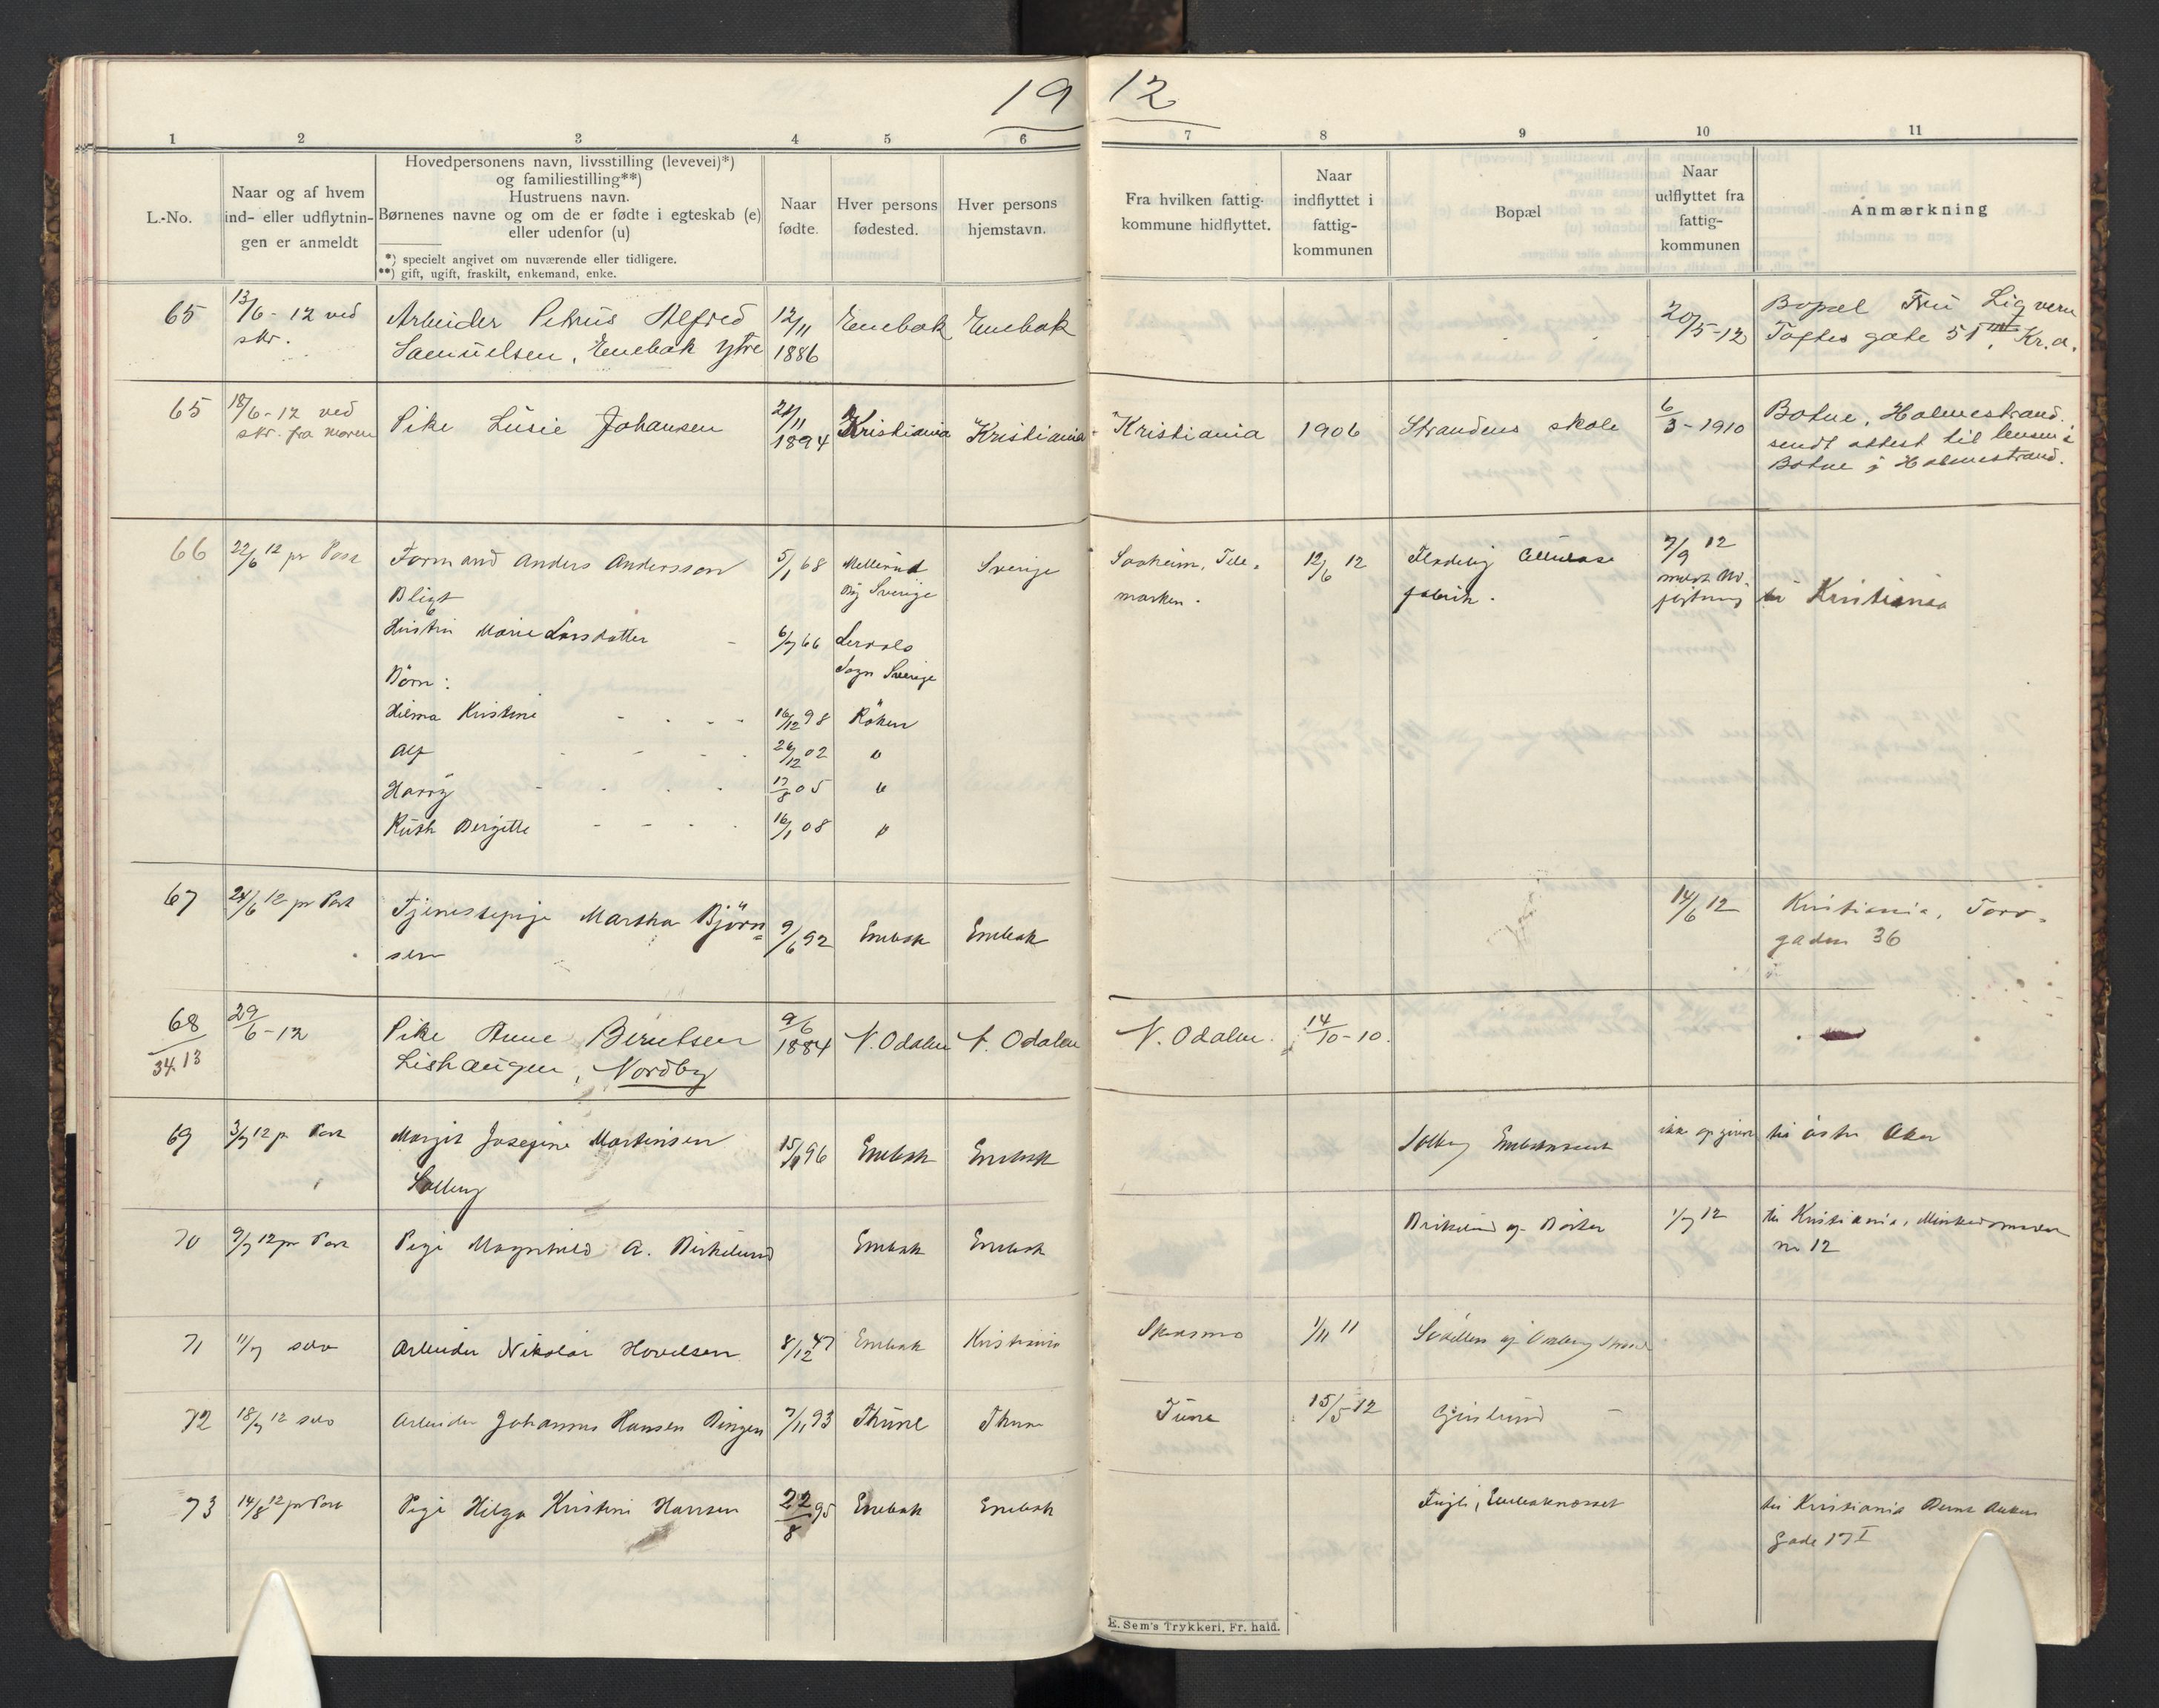 19 12
1 2 3 4 5 6 7 8 9 10 11
L.-No.
Naar og af hvem
ind- eller udflytnin-
gen er anmeldt
Hovedpersonens navn, livsstilling (levevei)*)
og familiestilling**)
Hustruens navn.
Børnenes navne og om de er fødte i egteskab (e)
eller udenfor (u)
*) specielt angivet om nuværende eller tidligere.
**) gift, ugift, fraskilt, enkemand, enke.
Naar
fødte.
Hver persons
fødested.
Hver persons
hjemstavn.
Fra hvilken fattig-
kommune hidflyttet.
Naar
indflyttet i
fattig-
kommunen
Bopæl
Naar
udflyttet fra
fattig-
kommunen
Anmærkning
65 13/6-12 ved Arbeider Petrus Alfred 12/11 Enebak Enebak 20/5-12 Bopæl Fru
skr. Samuelsen, Enebak Ytre 1886 Toftes gate Kr.a.
65 18/6-12 ved Pike Lusie Johansen 11 Kristiania Kristiania Kristiania 1906 Strandens skole 6/3-1910 Botne, Holmestrand.
skr. fra moren 1894 sendt attest til
Botne i Holmestrand.
66 22/6 12 pr Post Formand Anders Andersson 5/1 68 Mellerud Sverige Saaheim, Tele- 12/6 12 Cellulose 7/9 12
Bligt Sverige marken. fabrik. til Kristiania
Hustru Marie Larsdatter 6/7 66
Sogn Sverige
Børn:
Hilma Kristine 16/12 98 Röken
Alf 26/12 02 "
Harry 17/8 05 "
Ruth Bergitte 16/1 08 "
67 24/6 12 pr Post Tjenestepige Martha Björn= 9/6 92 Enebak Enebak 14/6 12 Kristiania, Torv-
sen gaden 36
68 29/6-12 Pike Anne Berntsen 9/6 1884 N. Odalen N. Odalen N. Odalen. 14/10-10.
34.13 Lishaugen, Nordby
69 3/7 12 pr Post Margit Josefine Martinsen 15/ 96 Enebak Enebak Solberg ikke opgivet til östre Aker
Solberg
70 9/7 12 pr Post Pige Magnhild A. Birkelund Enebak Enebak 1/7 12 til Kristiania,
nr 12
71 11/7 selv Arbeider Nikolai Hovelsen 8/12 47 Enebak Kristiania 1/11 11
72 18/7 12 selv Arbeider Johannes Hansen Dingen 7/11 93 Thune Thune Tune 15/5 12
73 14/8 12 pr Post Pige Helga Kristine Hansen 22/8 95 Enebak Enebak Enebaknesset til Kristiania Bernt Ankers
Gade 17 I
E. Sem's Trykkeri, Fr. hald.